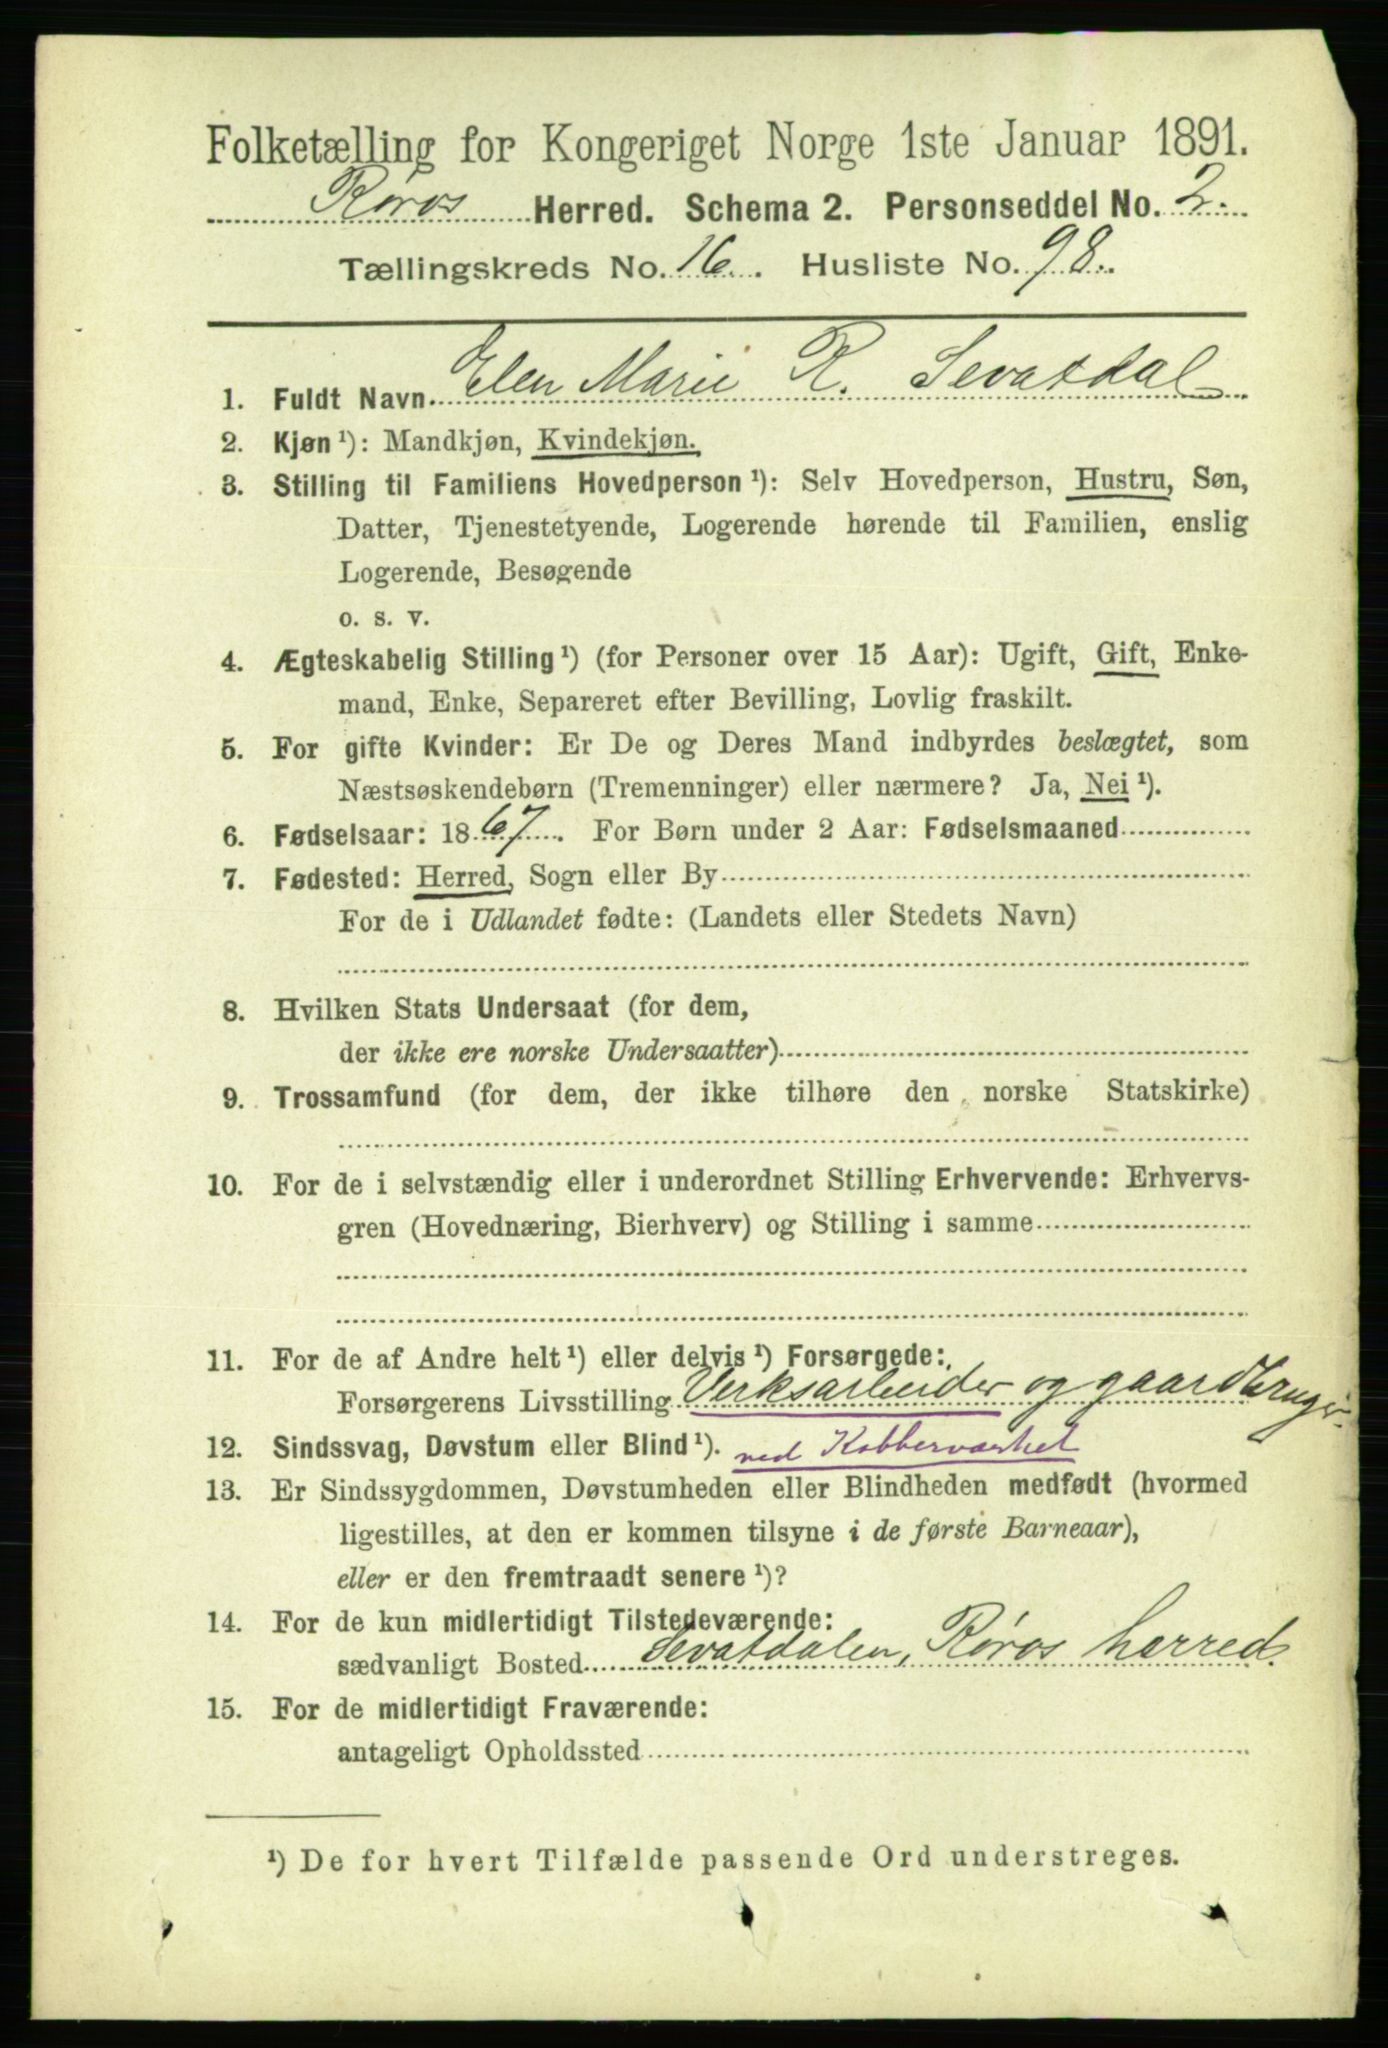 Folketælling for Kongeriget Norge 1ste Januar 1891.
Røros Herred. Schema 2. Personseddel No. 2.
Tællingskreds No. 16. Husliste No. 98.
1. Fuldt Navn Elen Marie R. Sevatdal
2. Kjøn ¹): Mandkjøn, Kvindekjøn.
3. Stilling til Familiens Hovedperson ¹): Selv Hovedperson, Hustru, Søn,
Datter, Tjenestetyende, Logerende hørende til Familien, enslig
Logerende, Besøgende
o. s. v.
4. Ægteskabelig Stilling ¹) (for Personer over 15 Aar): Ugift, Gift, Enke-
mand, Enke, Separeret efter Bevilling, Lovlig fraskilt.
5. For gifte Kvinder: Er De og Deres Mand indbyrdes beslægtet, som
Næstsøskendebørn (Tremenninger) eller nærmere? Ja, Nei ¹).
6. Fødselsaar: 1867. For Børn under 2 Aar: Fødselsmaaned
7. Fødested: Herred, Sogn eller By
For de i Udlandet fødte: (Landets eller Stedets Navn)
8. Hvilken Stats Undersaat (for dem,
der ikke ere norske Undersaatter)
9. Trossamfund (for dem, der ikke tilhøre den norske Statskirke)
10. For de i selvstændig eller i underordnet Stilling Erhvervende: Erhvervs-
gren (Hovednæring, Bierhverv) og Stilling i samme
11. For de af Andre helt ¹) eller delvis ¹) Forsørgede:
Forsørgerens Livsstilling Verksarbeider og gaardbruger
12. Sindssvag, Døvstum eller Blind ¹). ved Kobberværket
13. Er Sindssygdommen, Døvstumheden eller Blindheden medfødt (hvormed
ligestilles, at den er kommen tilsyne i de første Barneaar),
eller er den fremtraadt senere ¹)?
14. For de kun midlertidigt Tilstedeværende:
sædvanligt Bosted Sevatdalen, Røros herred.
15. For de midlertidigt Fraværende:
antageligt Opholdssted
¹) De for hvert Tilfælde passende Ord understreges.